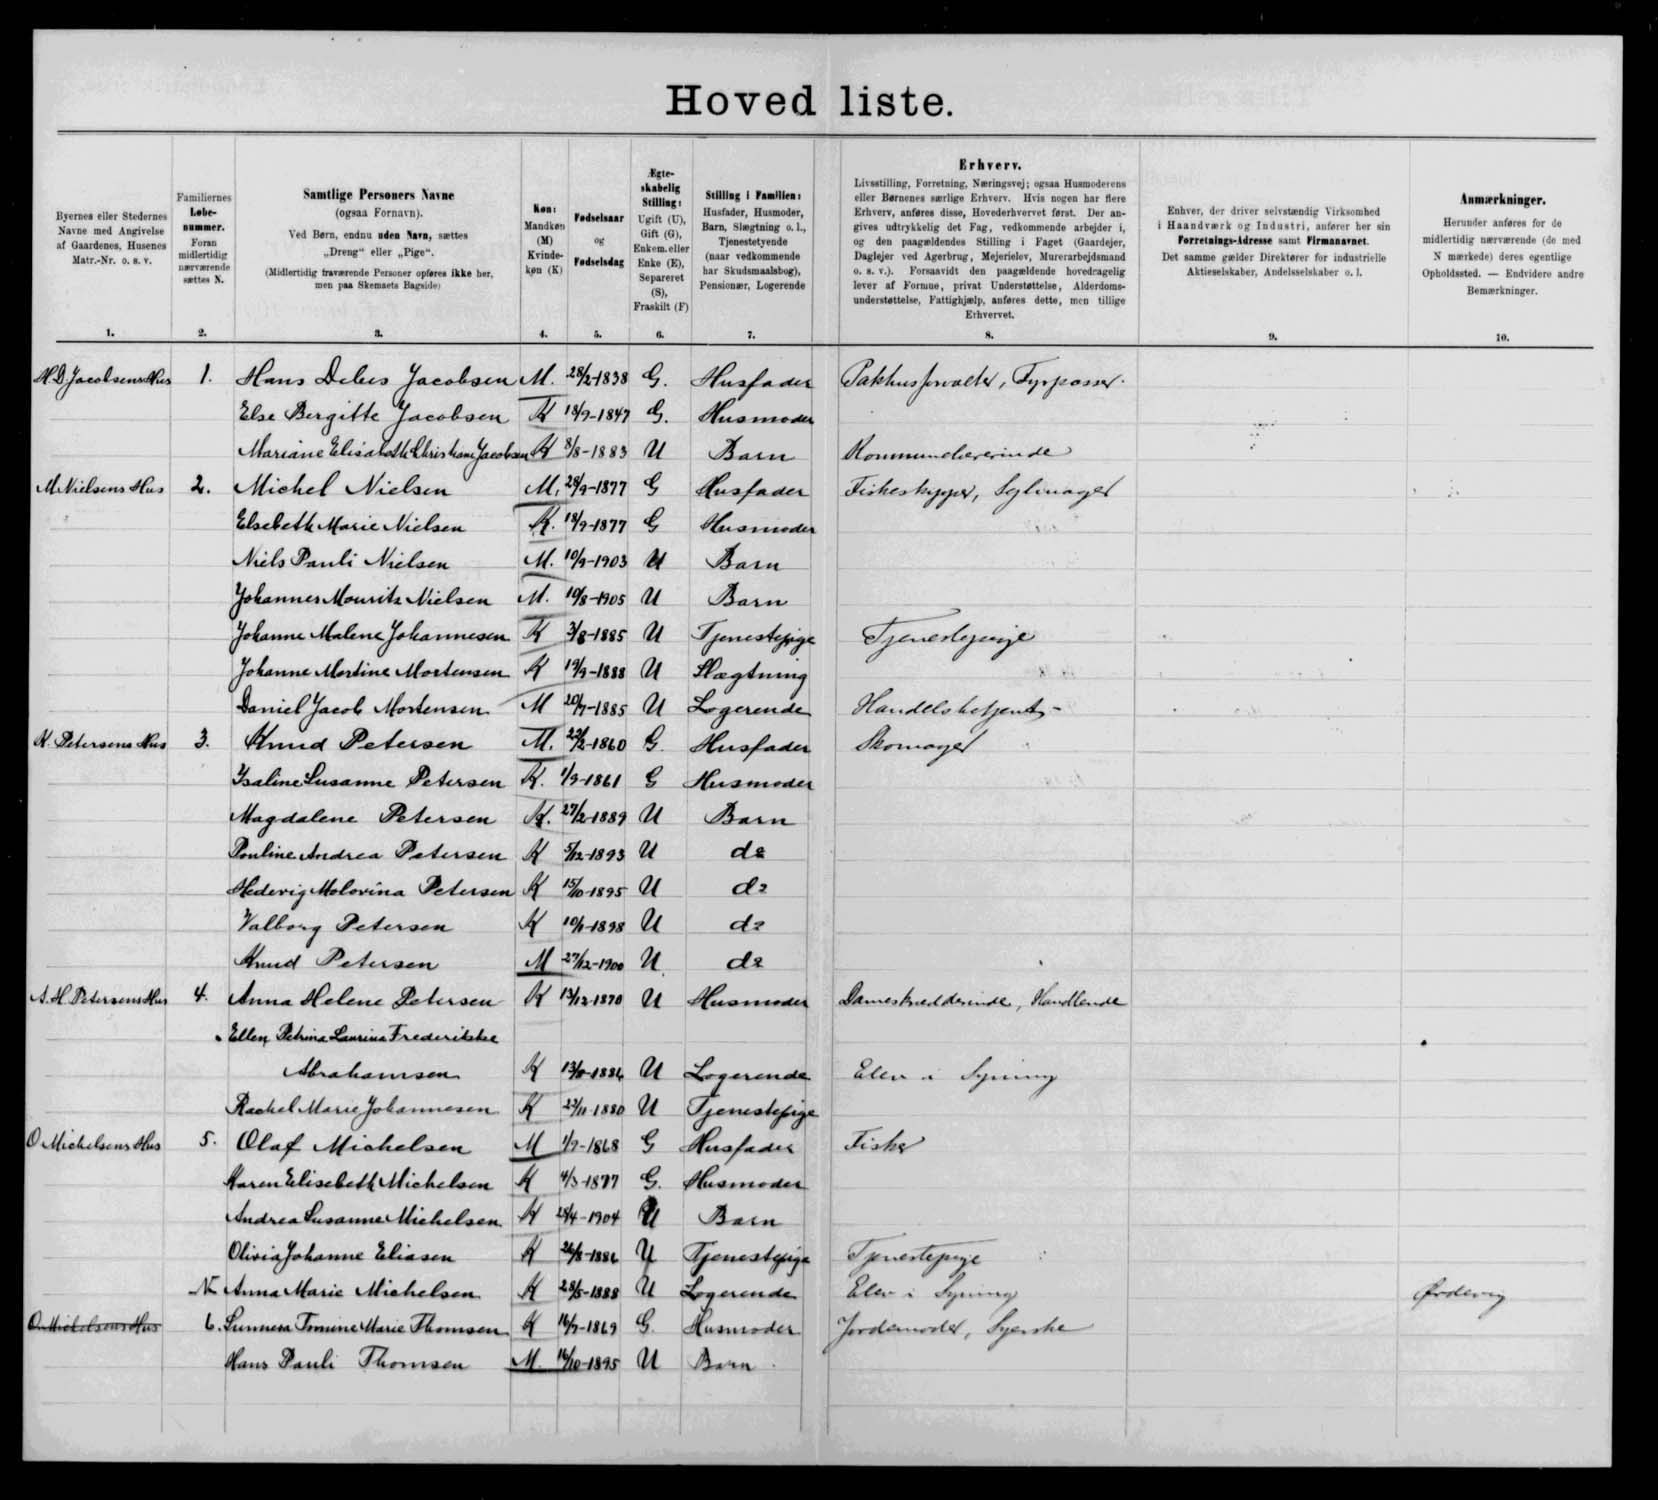 Hoved liste.
Byernes eller Stedernes Navne med Angivelse af Gaardenes, Husenes Matr.-Nr. o. s. v.
Familiernes Løbenummer. Foran midlertidig nærværende sættes N.
Samtlige Personers Navne
(ogsaa Fornavn).
Ved Børn, endnu uden Navn, sættes
„Dreng“ eller „Pige“.
(Midlertidig fraværende Personer opføres ikke her, men paa Skemaets Bagside)
Køn: Mandkøn (M) Kvindekøn (K)
Fødselsaar og Fødselsdag
Ægteskabelig Stilling: Ugift (U), Gift (G), Enkem. eller Enke (E), Separeret (S), Fraskilt (F)
Stilling i Familien: Husfader, Husmoder, Barn, Slægtning o. l., Tjenestetyende (naar vedkommende har Skudsmaalsbog), Pensionær, Logerende
Erhverv.
Livsstilling, Forretning, Næringsvej; ogsaa Husmoderens
eller Børnenes særlige Erhverv. Hvis nogen har flere
Erhverv, anføres disse, Hovederhvervet først. Der an-
gives udtrykkelig det Fag, vedkommende arbejder i,
og den paagældendes Stilling i Faget (Gaardejer,
Daglejer ved Agerbrug, Mejerielev, Murerarbejdsmand
o. s. v.). Forsaavidt den paagældende hovedragelig
lever af Formue, privat Understøttelse, Alderdoms-
understøttelse, Fattighjælp, anføres dette, men tillige
Erhvervet.
Enhver, der driver selvstændig Virksomhed
i Haandværk og Industri, anfører her sin
Forretnings-Adresse samt Firmanavnet.
Det samme gælder Direktører for industrielle
Aktieselskaber, Andelsselskaber o. l.
Anmærkninger.
Herunder anføres for de
midlertidig nærværende (de med
N mærkede) deres egentlige
Opholdssted. — Endvidere andre
Bemærkninger.
1. 2. 3. 4. 5. 6. 7. 8. 9. 10.
H. D. Jacobsens Hus 1. Hans Debes Jacobsen M. 28/2-1838 G. Husfader Pakhusforvalter, Fyrpasser.
Else Bergitte Jacobsen K 18/9-1847 G. Husmoder
Mariane Elisabeth Christiane Jacobsen K 8/8-1883 U Barn Kommunelærerinde
M. Nielsens Hus 2. Michel Nielsen M. 28/9-1877 G Husfader Fiskeskipper, Sejlmager
Elsebeth Marie Nielsen K. 18/9-1877 G Husmoder
Niels Pauli Nielsen M. 10/9-1903 U Barn
Johannes Mourits Nielsen M. 10/8-1905 U Barn
Johanne Malene Johannesen K 3/8-1885 U Tjenestepige Tjenestepige
Johanne Martine Mortensen K 19/9-1888 U Slægtning
Daniel Jacob Mortensen M 20/7-1885 U Logerende Handelsbetjent
K. Petersens Hus 3. Knud Petersen M. 22/2-1860 G. Husfader Skomager
Isaline Susanne Petersen K. 1/9-1861 G Husmoder
Magdalene Petersen K. 27/2-1889 U Barn
Pouline Andrea Petersen K 5/12-1893 U do
Hedevig Molovina Petersen K 15/10-1895 U do
Valborg Petersen K 1898 U do
Knud Petersen M 27/12-1900 U. do
A. H. Petersens Hus 4. Anna Helene Petersen K 13/12-1870 U Husmoder Dameskrædderinde, Handlende
Ellen Petrina Laurina Frederikke
Abrahamsen K U Logerende Elev i Syning
Rachel Marie Johannesen K 23/11-1880 U Tjenestepige
O Michelsens Hus 5. Olaf Michelsen M 1/9-1868 G Husfader Fisker
Karen Elisebeth Michelsen K 4/3-1877 G. Husmoder
Andrea Susanne Michelsen K 28/4-1904 U Barn
Olivia Johanne Eliasen K 26/8-1886 U Tjenestepige Tjenestepige
N Anna Marie Michelsen K 28/5-1888 U Logerende Elev i Syning Ørdevig
O. Michelsens Hus 6. Sunneva Tomine Marie Thomsen K 16/9-1869 G. Husmoder Jordemoder, Syerske
Hans Pauli Thomsen M. 16/10-1895 U Barn